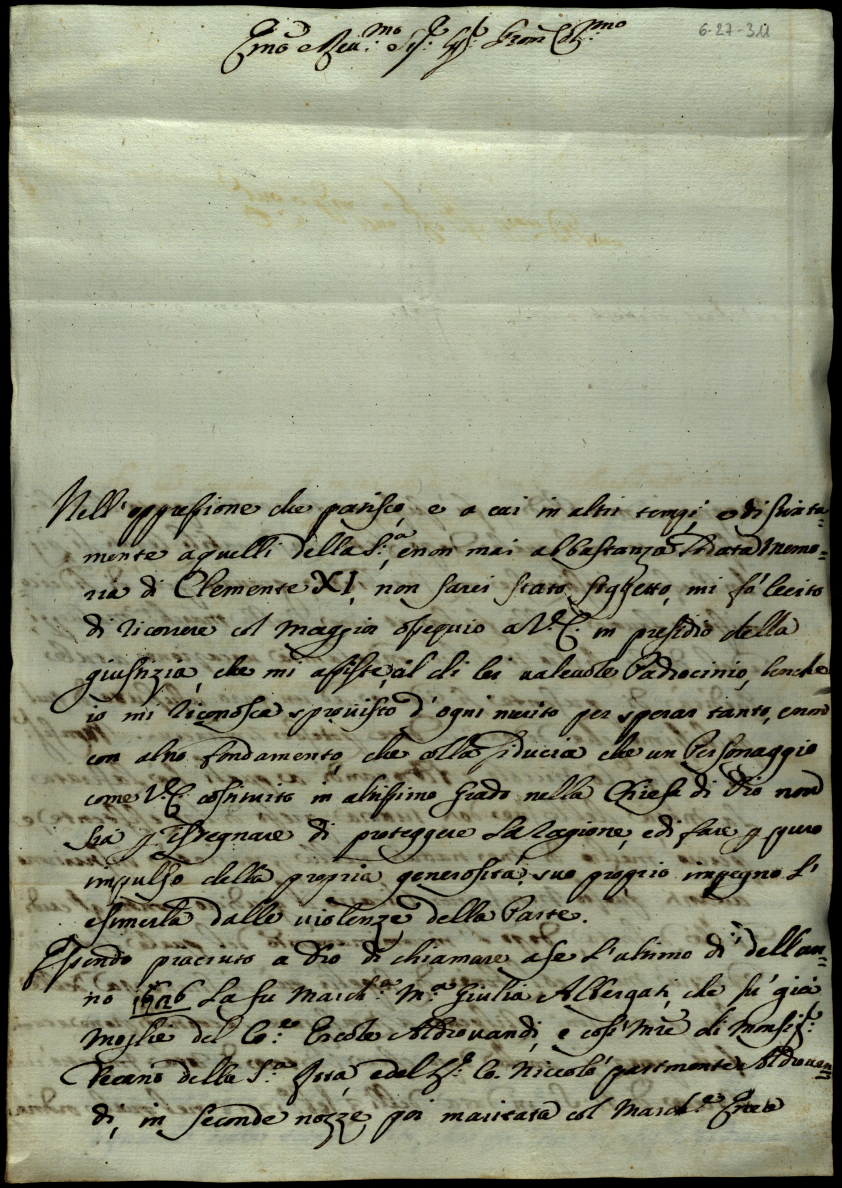 6-27-311
Emo e Reu.mo Sig.r Sig.r Pron Col.mo
Nell'oppressione che patisco, e a cui in altri tempi, e distinta=
mente a quelli della S.a, e non mai abbastanza lodata Memo=
ria di Clemente XI, non sarei stato soggetto, mi fò lecito
di ricorrere col maggior ossequio a V.E. in presidio della
giustizia, che mi assiste, al di lei valeuole Padrocinio, benche
io mi riconosca sprouisto d'ogni merito per sperar tanto, e non
con altro fondamento, che colla fiducia che un Personaggio
come V.E. costituito in altissimo grado nella Chiesa di Dio non
sia p isdegnare di proteggere la ragione, e di fare p puro
impulso della propria generosità, suo proprio impegno l'
esimerla dalle uiolenze della Parte.
Essendo piaciuto a Dio di chiamare a se l'ultimo dì dell'an=
no 1706 la fu March.a M.a Giulia Albergati, che fu già
Moglie del Co.e Ercole Aldrouandi, e così Mre di Monsig.r
Decano della S.a Rota, e del Sig.r Co. Niccolò parimente Aldrouan=
di, in seconde nozze poi maritata col March.e